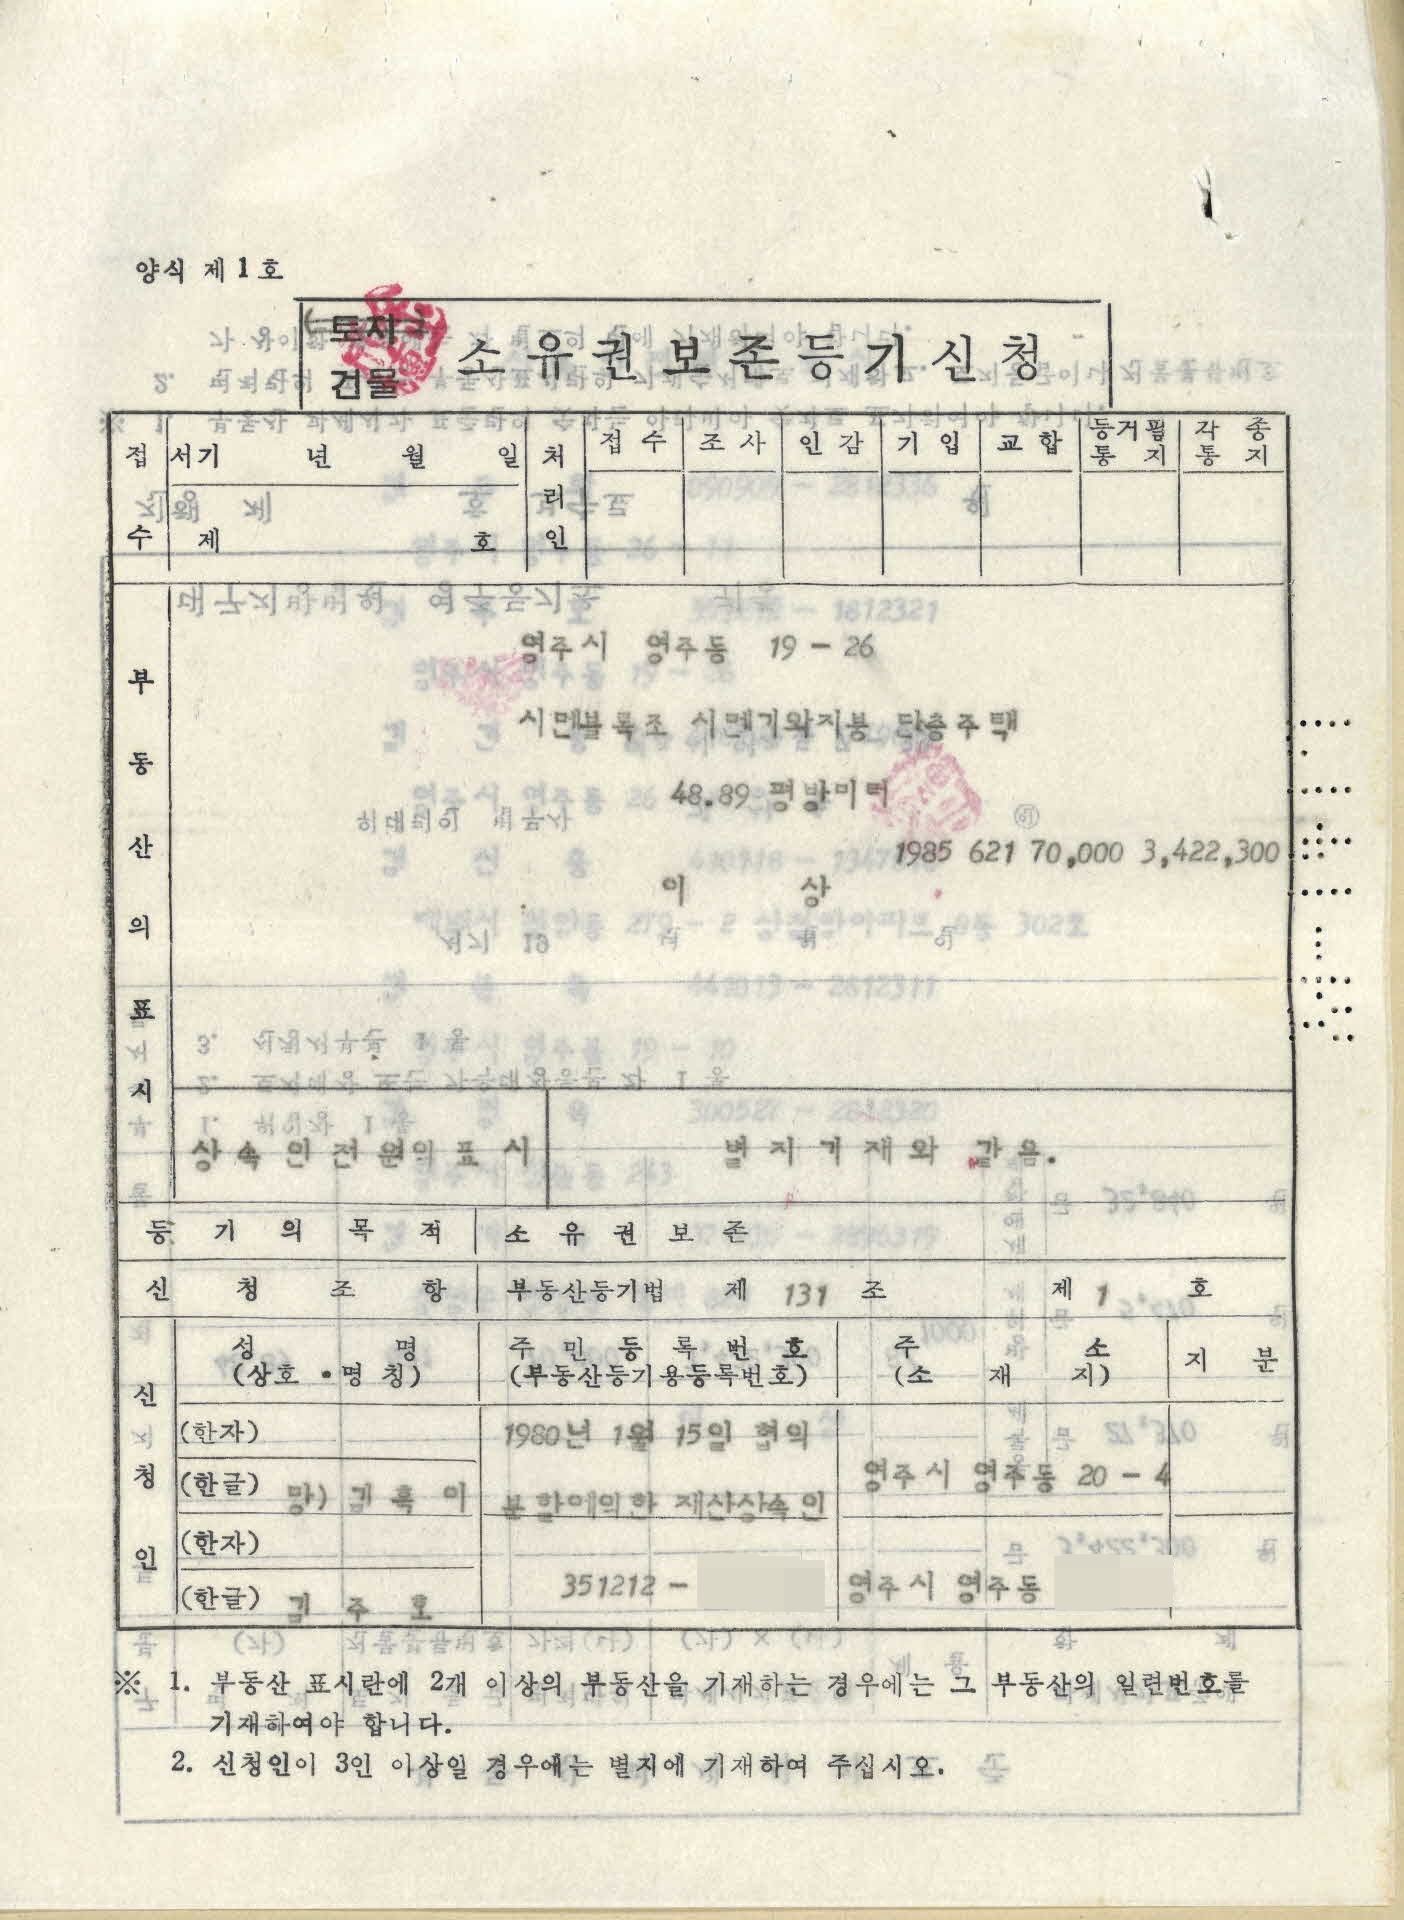 양식 제1호
토지
건물
소유권보존등기신청
접수
서기 년 월 일
제 호
처리인
접수 조사 인감 기입 교합 등거필통지 각종통지
부동산의 표시
영주시 영주동 19-26
시멘블록조 시멘기와지붕 단층주택
48.89 평방미터
1985 621 70,000 3,422,300
이 상
상속인전원의표시 별지기재와 같음.
등기의 목적 소유권보존
신청조항 부동산등기법 제 131 조 제 1 호
신청인
성명 (상호·명칭) 주민등록번호 (부동산등기용등록번호) 주소 (소재지) 지분
(한자) 1980년 1월 15일 협의
(한글) 망) 김흑이 분할에의한 재산상속인 영주시 영주동 20-4
(한자)
(한글) 김주호 351212- 영주시 영주동
※ 1. 부동산 표시란에 2개 이상의 부동산을 기재하는 경우에는 그 부동산의 일련번호를
기재하여야 합니다.
2. 신청인이 3인 이상일 경우에는 별지에 기재하여 주십시오.